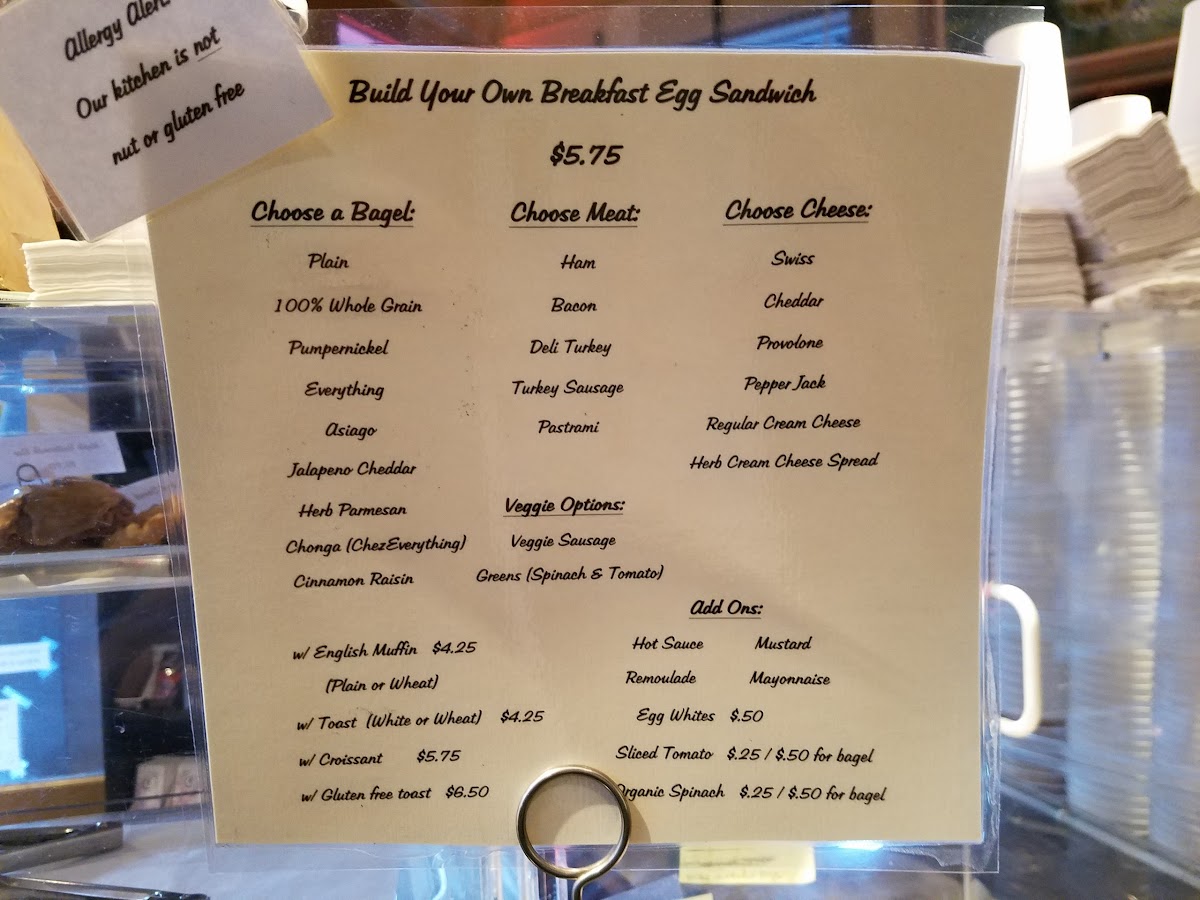 Allergy Alert
Our kitchen is not
nut or gluten free
Build Your Own Breakfast Egg Sandwich
$5.75
Choose a Bagel:
Plain
100% Whole Grain
Pumpernickel
Everything
Asiago
Jalapeno Cheddar
Herb Parmesan
Chonga (ChezEverything)
Cinnamon Raisin
w/ English Muffin $4.25
(Plain or Wheat)
w/ Toast (White or Wheat) $4.25
w/ Croissant $5.75
w/ Gluten free toast $6.50
Choose Meat:
Ham
Bacon
Deli Turkey
Turkey Sausage
Pastrami
Veggie Options:
Veggie Sausage
Greens (Spinach & Tomato)
Choose Cheese:
Swiss
Cheddar
Provolone
Pepper Jack
Regular Cream Cheese
Herb Cream Cheese Spread
Add Ons:
Hot Sauce Mustard
Remoulade Mayonnaise
Egg Whites $.50
Sliced Tomato $.25 / $.50 for bagel
Organic Spinach $.25 / $.50 for bagel